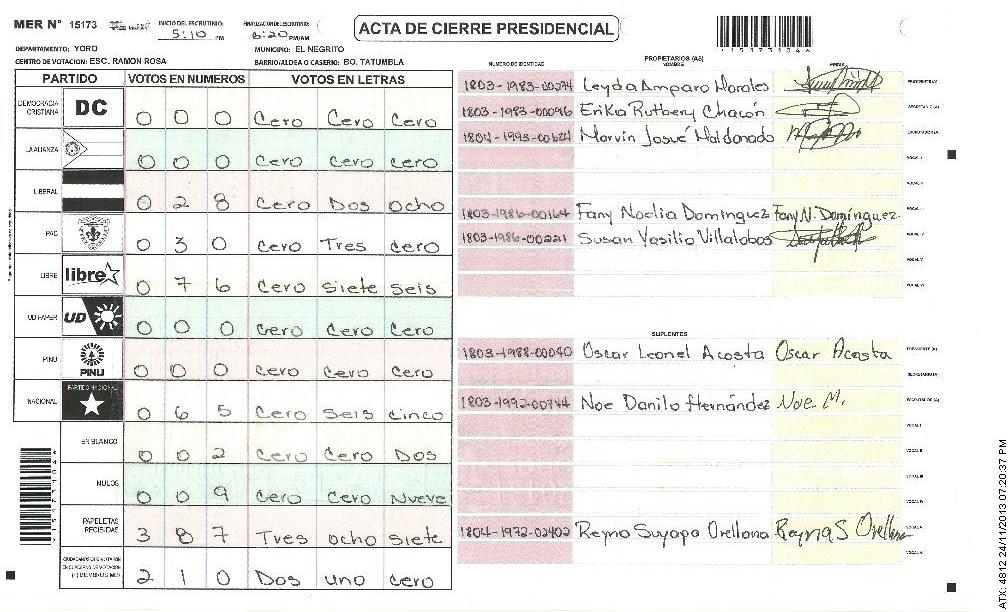 MER N° 15173
INICIO DEL ESCRUTINIO: 5:10 PM
FINALIZACION ESCRUTINIO: 6:20 PM/AM
ACTA DE CIERRE PRESIDENCIAL
15173104
DEPARTAMENTO: YORO
MUNICIPIO: EL NEGRITO
CENTRO DE VOTACION: ESC. RAMON ROSA
BARRIO/ALDEA O CASERIO: BO. TATUMBLA
PARTIDO VOTOS EN NUMEROS VOTOS EN LETRAS
DEMOCRACIA CRISTIANA DC 0 0 0 Cero Cero Cero
LA ALIANZA 0 0 0 Cero Cero Cero
LIBERAL 0 2 8 Cero Dos Ocho
PAC 0 3 0 Cero Tres Cero
LIBRE libre 0 7 6 Cero Siete Seis
UD FAPER UD 0 0 0 Cero Cero Cero
PINU PINU 0 0 0 Cero Cero Cero
NACIONAL PARTIDO NACIONAL 0 6 5 Cero Seis Cinco
EN BLANCO 0 0 2 Cero Cero Dos
NULOS 0 0 9 Cero Cero Nueve
PAPELETAS RECIBIDAS 3 8 7 Tres Ocho Siete
CIUDADANOS QUE VOTARON EN CUADERNO DE VOTACION (+) MIEMBROS MER 2 1 0 Dos uno cero
NUMERO DE IDENTIDAD PROPIETARIOS (AS) NOMBRE FIRMA
1803-1983-00274 Leyda Amparo Morales PRESIDENTE (A)
1803-1983-00096 Erika Rutbery Chacón SECRETARIO (A)
1804-1995-00624 Marvin Josué Maldonado ESCRUTADOR (A)
VOCAL I
VOCAL II
1803-1986-00164 Fany Noelia Dominguez Fany N. Domínguez. VOCAL III
1803-1986-00221 Susan Yasilia Villalobos VOCAL IV
VOCAL V
VOCAL VI
SUPLENTES
1803-1988-00040 Oscar Leonel Acosta Oscar Acosta PRESIDENTE (A)
SECRETARIO (A)
1803-1992-00744 Noe Danilo Hernández Noe. M. ESCRUTADOR (A)
VOCAL I
VOCAL II
VOCAL III
VOCAL IV
1804-1972-02402 Reyna Suyapa Orellana Reyna S Orellana VOCAL V
VOCAL VI
ATX: 4812 24/11/2013 07:20:37 PM